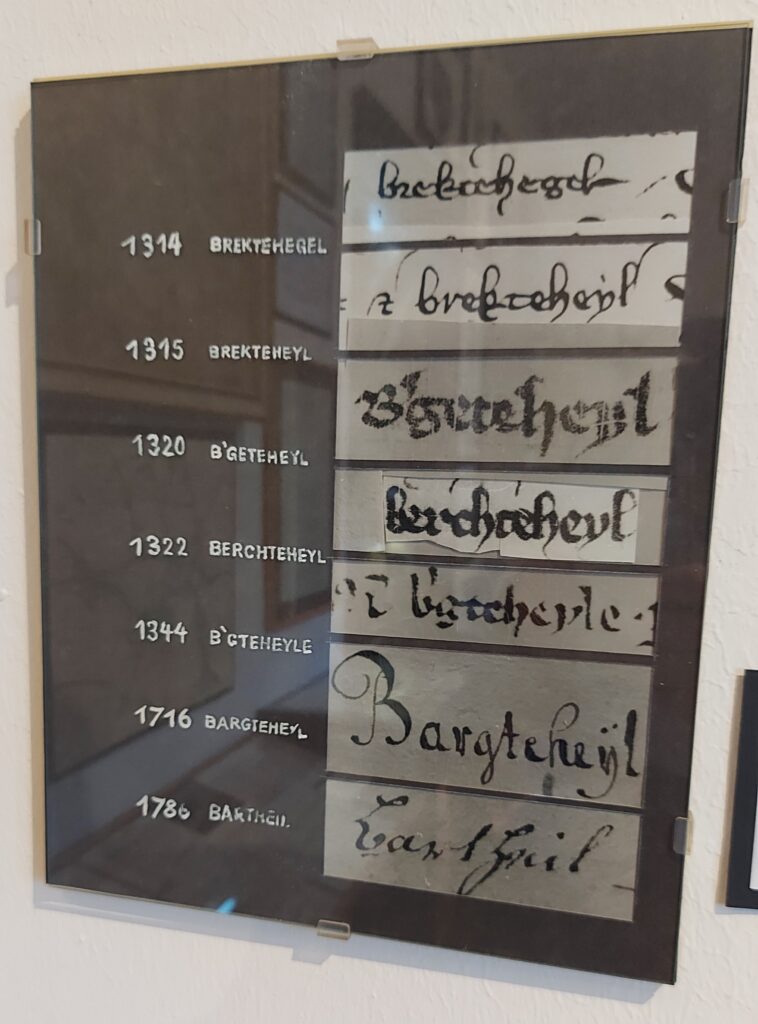 brektehegel
1314 BREKTEHEGEL
brekteheyl
1315 BREKTEHEYL
B'geteheyl
1320 B'GETEHEYL
berchteheyl
1322 BERCHTEHEYL
b'gteheyle
1344 B'GTEHEYLE
Bargteheÿl
1716 BARGTEHEYL
Bartheil
1786 BARTHEIL